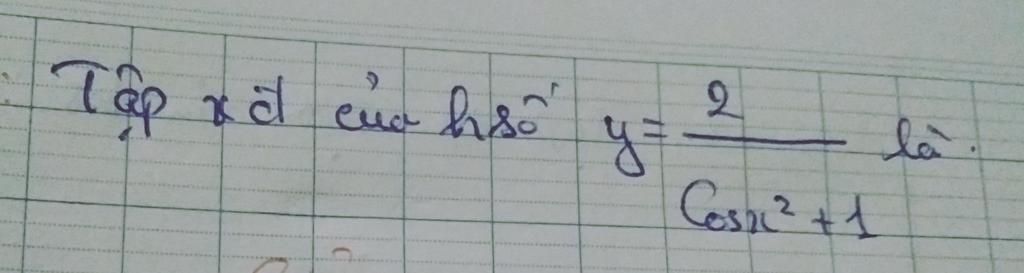 Tập xđ của hsố y = 2 / (Cosx² + 1) là.